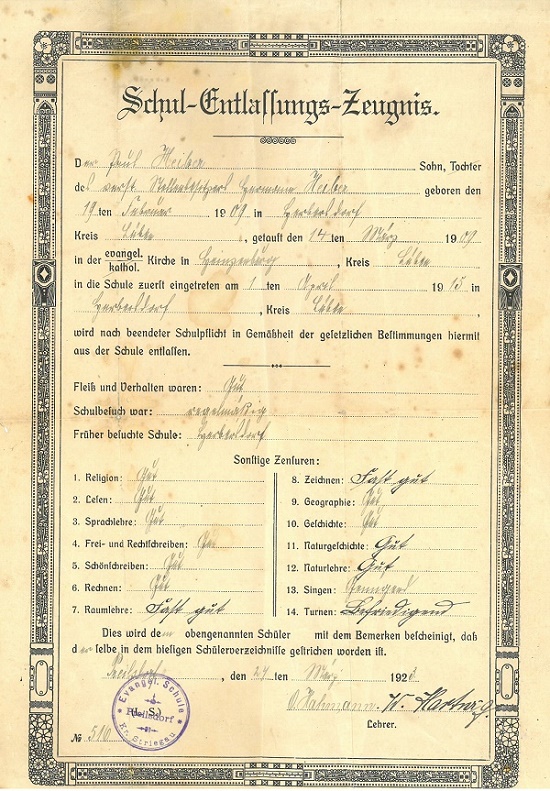 Schul-Entlassungs-Zeugnis.
Der Paul Sohn, Tochter
des verst. Stellenbesitzers Hermann geboren den
19 ten Februar 1909 in Herbersdorf
Kreis Lüben, getauft den 14 ten März 1909
in der evangel. kathol. Kirche in Heinzenburg, Kreis Lüben
in die Schule zuerst eingetreten am 1 ten April 1915 in
Herbersdorf, Kreis Lüben,
wird nach beendeter Schulpflicht in Gemäßheit der gesetzlichen Bestimmungen hiermit
aus der Schule entlassen.
Fleiß und Verhalten waren: Gut
Schulbesuch war: regelmäßig
Früher besuchte Schule: Herbersdorf
Sonstige Zensuren:
1. Religion: Gut
2. Lesen: Gut
3. Sprachlehre: Gut
4. Frei- und Rechtschreiben: Gut
5. Schönschreiben: Gut
6. Rechnen: Gut
7. Raumlehre: Fast gut
8. Zeichnen: Fast gut
9. Geographie: Gut
10. Geschichte: Gut
11. Naturgeschichte: Gut
12. Naturlehre: Gut
13. Singen: Genügend
14. Turnen: Befriedigend
Dies wird dem obengenannten Schüler mit dem Bemerken bescheinigt, daß
derselbe in dem hiesigen Schülerverzeichnisse gestrichen worden ist.
, den 27 ten März 1923
Evangel. Schule
(L. S.)
Kr. Striegau
Lehrer.
№ 516